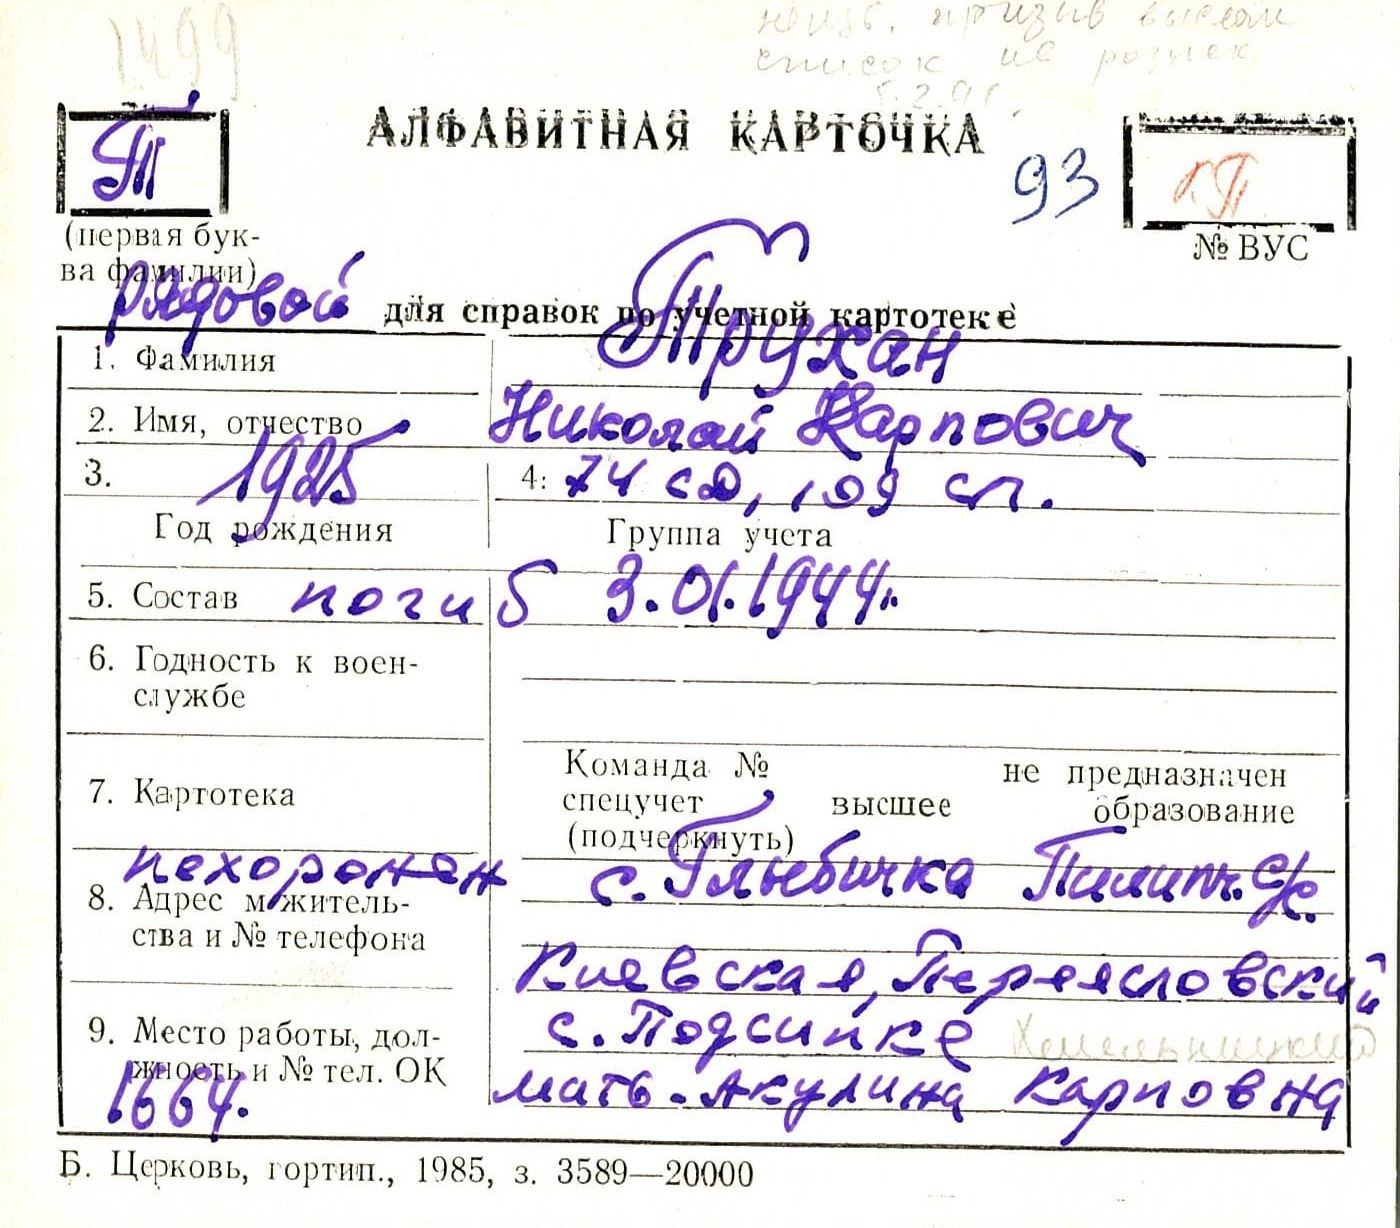 1499
призыв выслан
список на розыск
5.2.91.
Т
АЛФАВИТНАЯ КАРТОЧКА
93
(первая бук-
ва фамилии)
№ ВУС
рядовой
для справок по учетной картотеке
1. Фамилия Трухан
2. Имя, отчество Николай Карпович
3. 1925 4. 74 сд, 109 сп.
Год рождения Группа учета
5. Состав погиб 3.01.1944г.
6. Годность к воен-
службе
Команда № не предназначен
7. Картотека
спецучет высшее образование
(подчеркнуть)
похоронен с. Глыбичка Пилипч. с/с.
8. Адрес м житель-
ства и № телефона
Киевская, Переясловский
9. Место работы, дол-
с. Подсипке Хмельницкий
жность и № тел. ОК
1664. мать - Акулина Карповна
Б. Церковь, гортип., 1985, з. 3589—20000